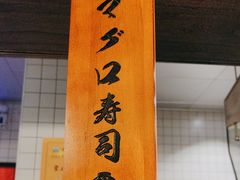 マグロ寿司